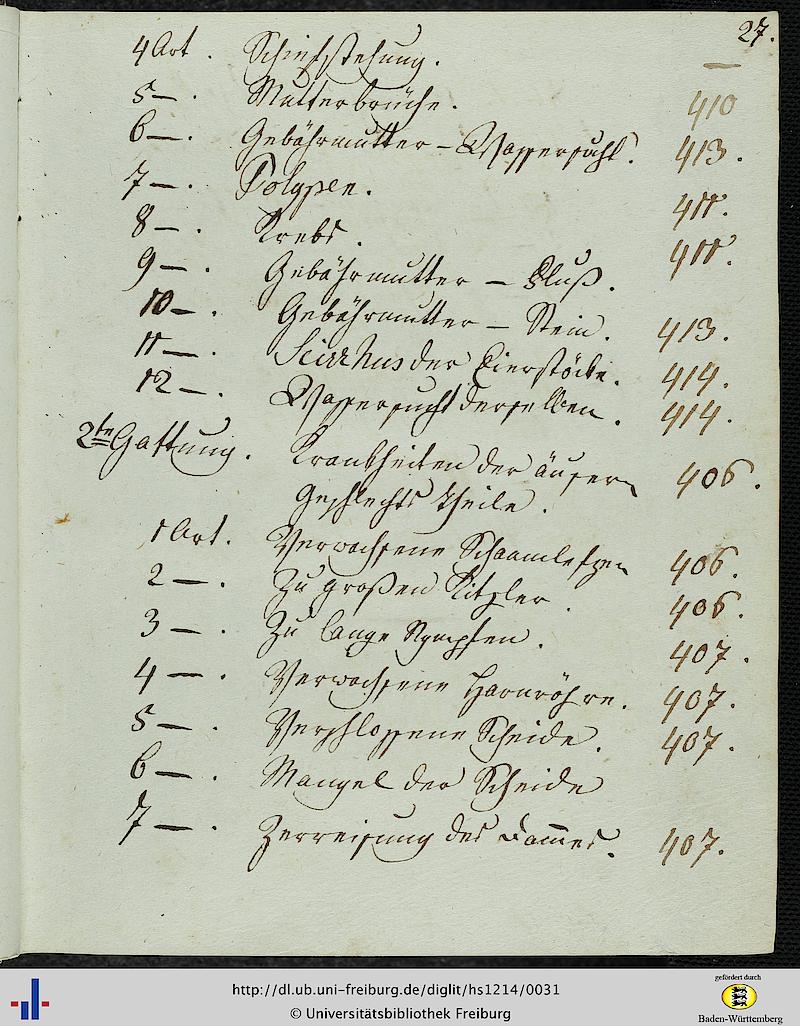 27.
4 Art. Schiefstehung. —
5 —. Mutterbrüche. 410
6 —. Gebährmutter – Wassersucht. 413.
7 —. Polypen. 411.
8 —. Krebs. 411.
9 —. Gebährmutter – Fluß.
10 —. Gebährmutter – Stein. 413.
11 —. Scirrhus der Eierstöcke. 414.
12 —. Wassersucht derselben. 414.
2te Gattung. Krankheiten der äusern 406.
Geschlechts Theile.
1 Art. Verwachsene Schaamlefzen 406.
2 —. Zu großen Kitzler. 406.
3 —. Zu lange Nymphen. 407.
4 —. Verwachsene Harnröhre. 407.
5 —. Verschlossene Scheide. 407.
6 —. Mangel der Scheide
7 —. Zerreisung des Dam̅es. 407.
http://dl.ub.uni-freiburg.de/diglit/hs1214/0031
© Universitätsbibliothek Freiburg
gefördert durch
Baden-Württemberg